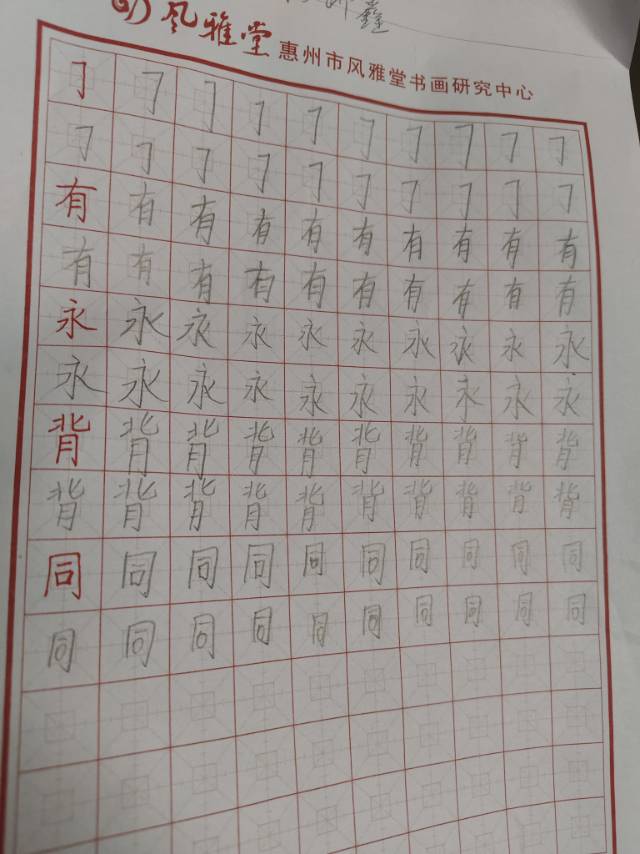 鑫
风雅堂 惠州市风雅堂书画研究中心
㇆ ㇆ ㇆ ㇆ ㇆ ㇆ ㇆ ㇆ ㇆ ㇆
㇆ ㇆ ㇆ ㇆ ㇆ ㇆ ㇆ ㇆ ㇆ ㇆
有 有 有 有 有 有 有 有 有 有
有 有 有 有 有 有 有 有 有 有
永 永 永 永 永 永 永 永 永 永
永 永 永 永 永 永 永 永 永 永
背 背 背 背 背 背 背 背 背 背
背 背 背 背 背 背 背 背 背 背
同 同 同 同 同 同 同 同 同 同
同 同 同 同 同 同 同 同 同 同